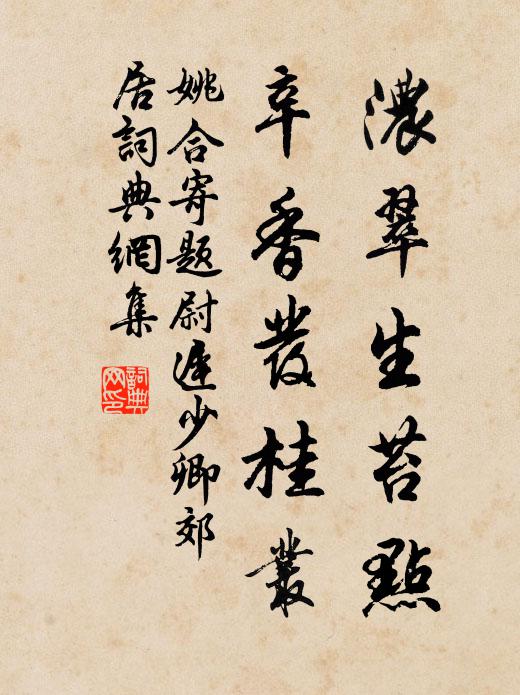 濃翠生苔點
辛香發桂叢
姚合寄題尉遲少卿郊
居詞典網集
詞典網印